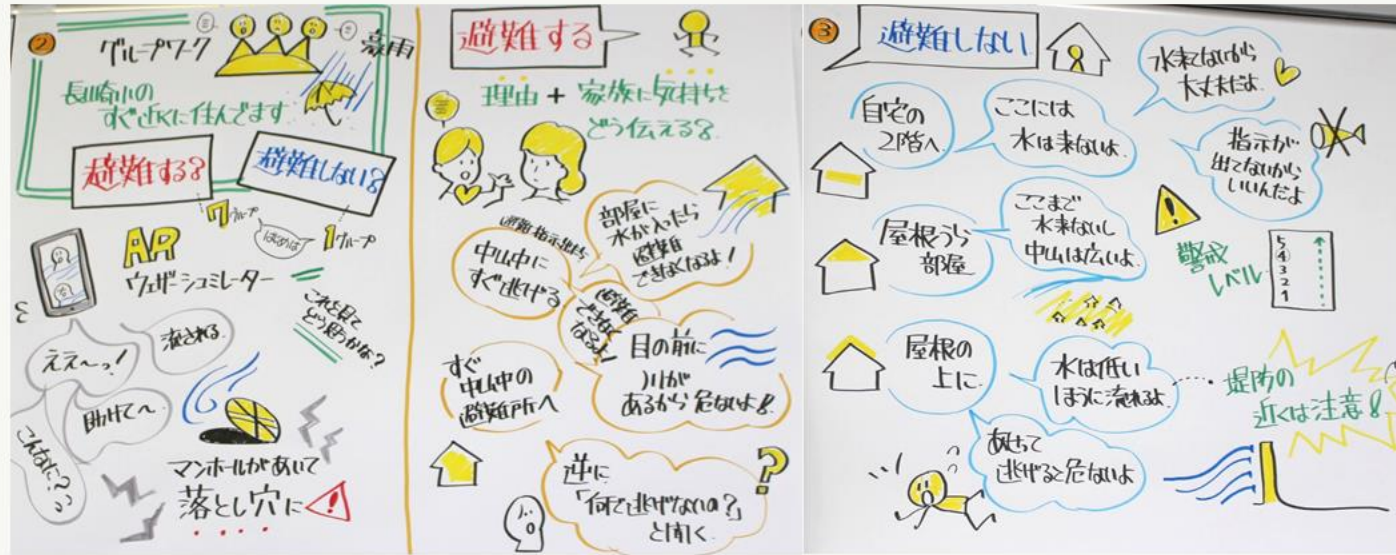 ②
グループワーク
豪雨
長崎小の
すぐ近くに住んでます
避難する?
避難しない?
7グループ
はじめは
1グループ
AR
ウェザーシュミレーター
これを見て
どう思うかな?
ええ〜っ!
流される
助けて〜
こんなに?っ
マンホールがあいて
落とし穴に
避難する
理由 + 家族に気持ちを
どう伝える?
避難指示出たら
中山中に
すぐ逃げる
部屋に
水が入ったら
避難
できなくなるよ!
避難
できなく
なるよ!
すぐ
中山中の
避難所へ
目の前に
川が
あるから 危ないよ!
逆に
「何で逃げないの?」
と聞く
?
③
避難しない
自宅の
2階へ
ここには
水は来ないよ
水来てないから
大丈夫だよ
指示が
出てないから
いいんだよ
屋根うら
部屋
ここまで
水来ないし
中山は広いよ
警戒
レベル
5
4
3
2
1
屋根の
上に
水は低い
ほうに流れるよ
堤防の
近くは注意!
あせって
逃げると危ないよ